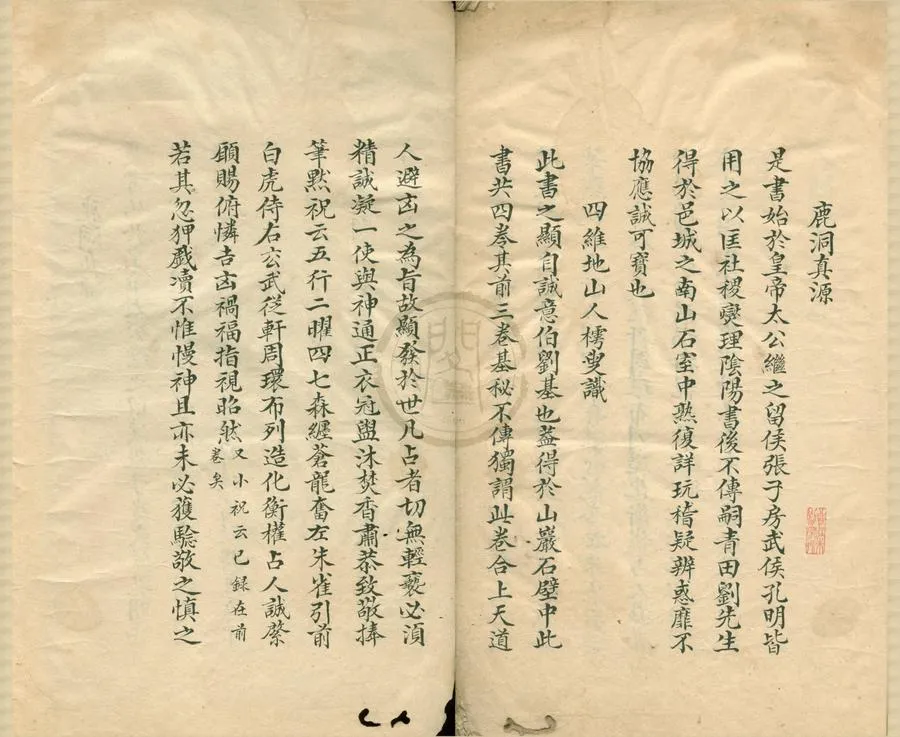 鹿洞真源
是書始於皇帝太公繼之留侯張子房武侯孔明皆
用之以匡社稷燮理陰陽書後不傳嗣青田劉先生
得於邑城之南山石室中熟復詳玩稽疑辨惑靡不
協應誠可寶也
四維地山人樗叟識
此書之顯自誠意伯劉基也葢得於山巖石壁中此
書共四卷其前三卷基秘不傳獨謂此卷合上天道
人避凶之為旨故顯發於世凡占者切無輕褻必須
精誠凝一使與神通正衣冠盥沐焚香肅恭致敬捧
筆默祝云五行二曜四七森纏蒼龍奮左朱雀引前
白虎侍右玄武從軒周環布列造化衡權占人誠啓
願賜俯憐吉凶禍福指視昭然又小祝云已録在前
卷矣
若其忽狎戲瀆不惟慢神且亦未必獲驗敬之慎之